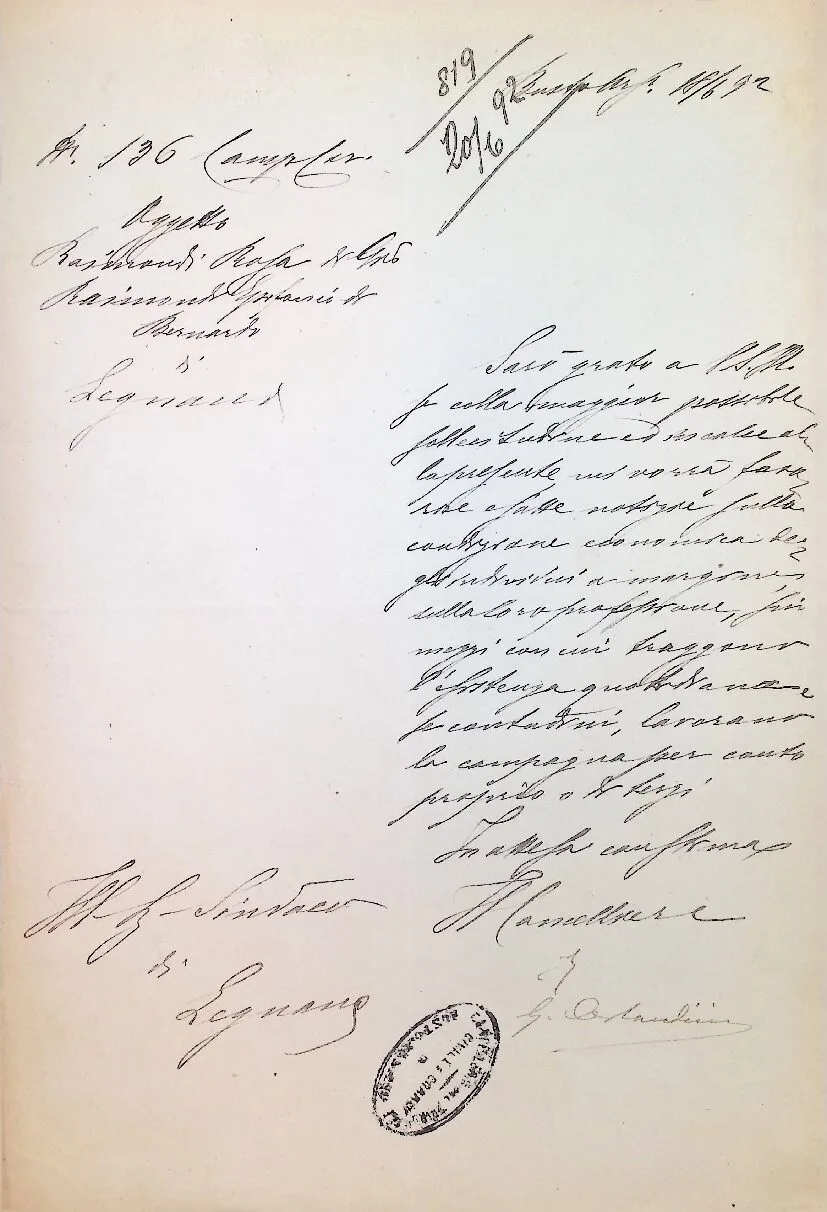 819
20/6 92
Busto Arso. 18/6 92
N. 136 Camp Civ.
Oggetto
Raimondi Rosa di Gio
Raimondi di
Bernardo
di
Legnano
Sarò grato a V.S.Ill.
se colla maggior possibile
sollecitudine ed in calce al
la presente mi vorrà forni
re esatte notizie sulla
condizione economica de
gli individui a margine,
sulla loro professione, sui
mezzi con cui traggono
l'esistenza quotidiana e
se contadini, lavorano
la campagna per conto
proprio o di terzi
In attesa con stima
Il Cancelliere
Ill. Sig. Sindaco
di
Legnano
CANCELLERIA DEL TRIBUNALE
CIVILE E CORREZ.